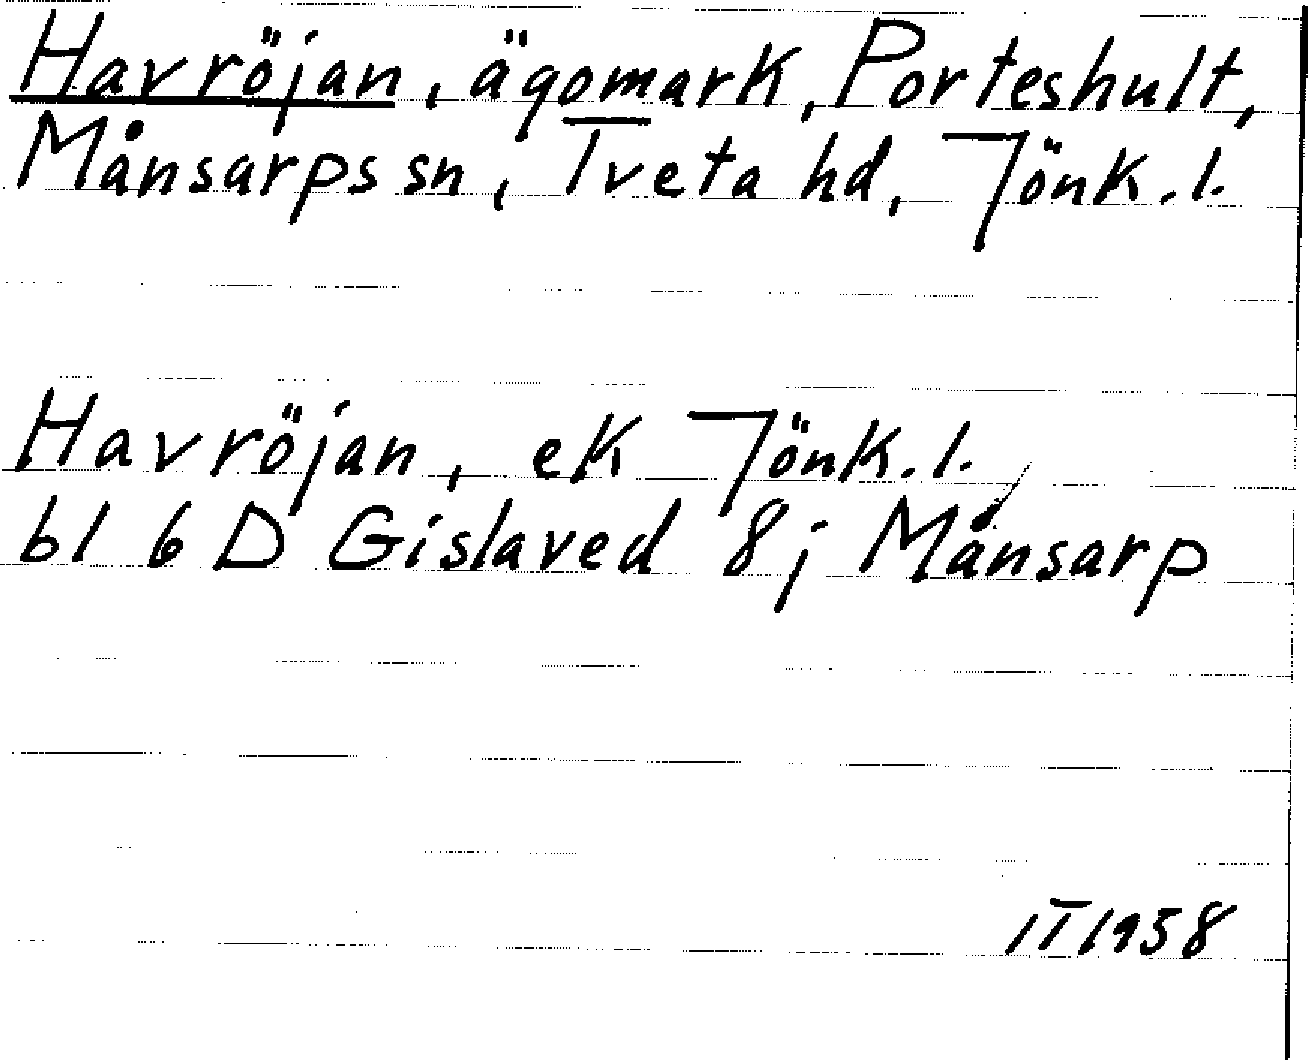 Havröjan, ägomark, Porteshult,
Månsarps sn, Tveta hd, Jönk.l.
Havröjan, ek Jönk.l.
bl 6 D Gislaved 8j Månsarp
IT 1958